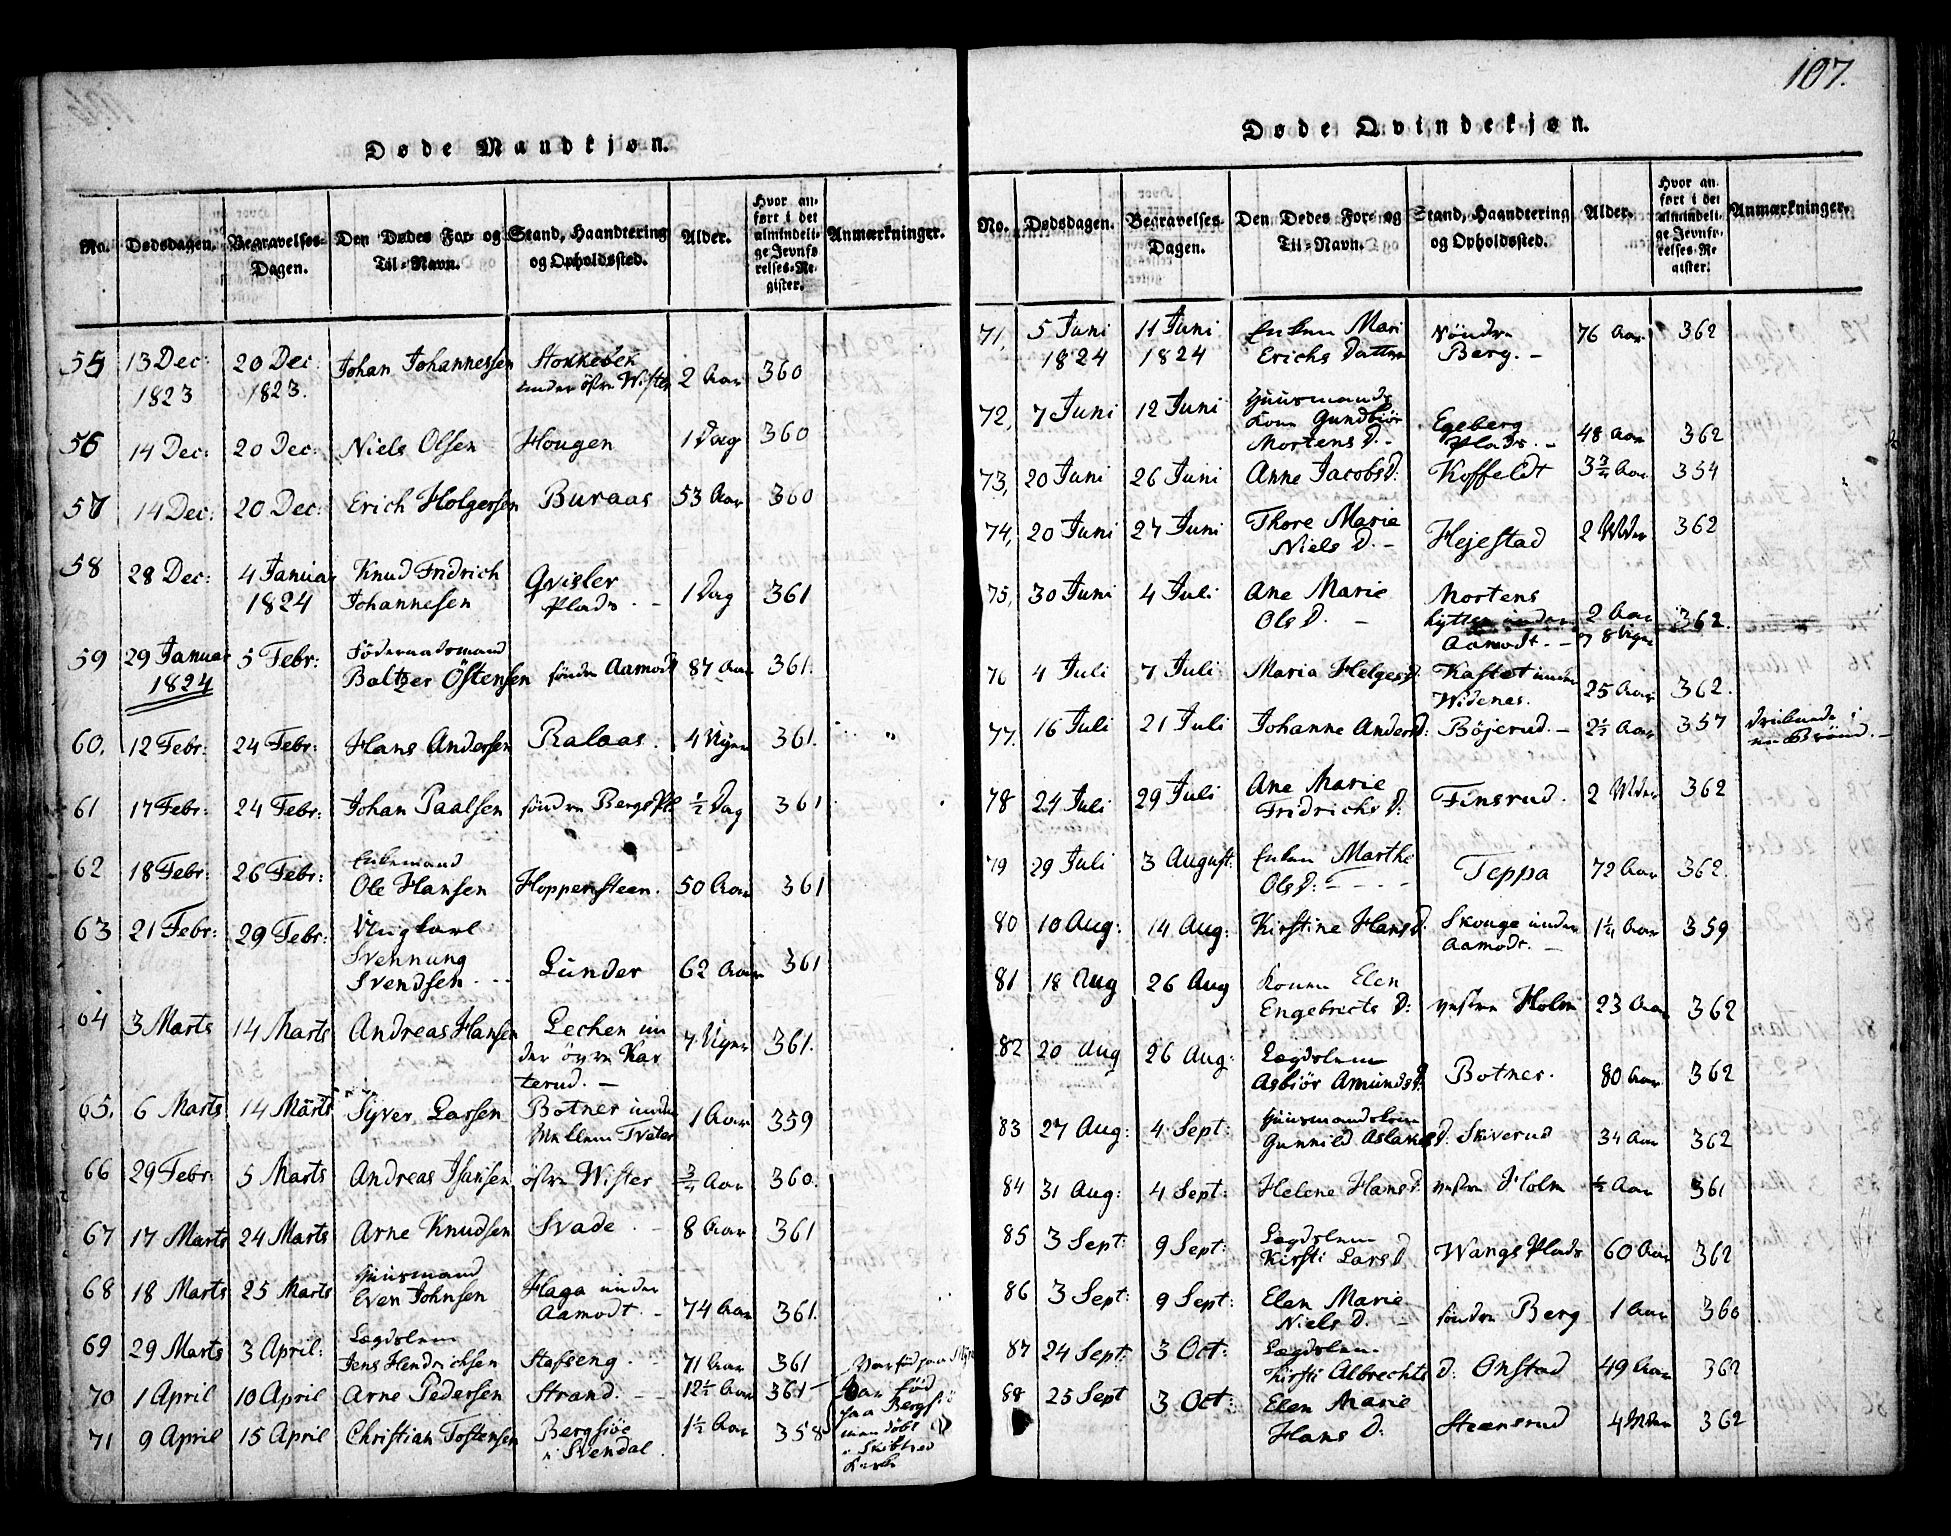 107.
Døde Mandkjøn.
No. Dødsdagen. Begravelses-Dagen. Den Dødes For- og Til-Navn. Stand, Haandtering og Opholdssted. Alder. Hvor anført i det almindelige Jevnførelses-Register. Anmærkninger.
55 13 Dec: 1823 20 Dec: 1823. Johan Johannessen Stokkebek under östre Wister 2 Aar 360
56 14 Dec: 20 Dec: Niels Olsen Hougen 1 Dag 360
57 14 Dec: 20 Dec: Erich Holgersen Buraas 53 Aar 360
58 28 Dec: 4 Januar 1824 Knud Fridrich Johannesen Qvisler Plads. - 1 Dag 361
59 29 Januar 1824 5 Febr: Föderaadsmand Baltzer Östensen söndre Aamodt 87 Aar 361.
60. 12 Febr: 24 Febr: Hans Andersen Ralaas. 4 Uger 361.
61 17 Febr: 24 Febr: Johan Paalsen söndre Bergs Pl: ½ Dag 361
62 18 Febr: 26 Febr: Enkemand Ole Hansen Hoppersteen. 50 Aar 361
63 21 Febr: 29 Febr: Ungkarl Svennung Svendsen. Lunder 62 Aar 361
64 3 Marts 14 Marts Andreas Hansen Lechen under övre Karterud. - 7 Uger 361.
65. 6 Marts 14 Marts Syver Larsen Botner under Mellem Tveter 1 Aar 359
66 29 Febr: 5 Marts Andreas Hansen östre Wister ¾ Aar 360.
67 17 Marts 24 Marts Arne Knudsen Svade. - 8 Aar 361
68 18 Marts 25 Marts Huusmand Even Johnsen Haga under Aamodt. - 74 Aar 361.
69 29 Marts 3 April: Lægdslem Jens Hendrichsen Stafseng. - 71 Aar 361
70 1 April 10 April Arne Pedersen Strand. - 12½ Aar 361
71 9 April 15 April Christian Tostensen Bergsiöe i Svendal. 1½ Aar 358 Var föd paa Bergsiö men döbt i Skibtved Kirke
Døde Qvindekjøn.
No. Dødsdagen. Begravelses-Dagen. Den Dødes For- og Til-Navn. Stand, Haandtering og Opholdssted. Alder. Hvor anført i det almindelige Jevnførelses-Register. Anmærkninger.
71, 5 Juni 1824 11 Juni 1824 Enken Mari Erichs Datter Nöndre Berg. - 76 Aar 362
72, 7 Juni 12 Juni Huusmands Kone Gundbiör Mortens D. - Egeberg Plads. - 48 Aar 362
73, 20 Juni 26 Juni Anne Jacobs D: Koffeldt 3¾ Aar 354
74, 20 Juni 27 Juni Thore Marie Niels D. - Hejestad 2 362
75, 30 Juni 4 Juli Ane Marie Ols D. - Mortens hytten under Aamodt. - 2 Aar 7 8 Uger 362.
76 4 Juli 7 Juli Maria Helges D. Kastet under Widenes. 25 Aar 362.
77. 16 Juli 21 Juli Johanne Anders D: Böjerud. - 2½ Aar 357 druknede i en Brönd. -
78 24 Juli 29 Juli Ane Marie Fridrichs D: Finsrud. 2 362
79 29 Juli 3 August: Enken Marthe Ols D: - Teppa 72 Aar 362.
80 10 Aug: 14 Aug: Kirstine Hans D. Skouge under Aamodt. - 1¼ Aar 359
81 18 Aug 26 Aug Konen Elen Engebrects D: vestre Holm 23 Aar 362
82 20 Aug 26 Aug: Lægdslem Asbiör Amunds D. Botner. 80 Aar 362
83 27 Aug: 4 Sept: Huusmandskone Gunnild Aslaks D. Skiverud 34 Aar 362
84 31 Aug: 4 Sept: Helene Hans D. vestre Holm ½ Aar 361
85 3 Sept: 9 Sept: Lægdslem Kirsti Lars D Wangs Plads 60 Aar 362
86 3 Sept: 9 Sept: Elen Marie Niels D. - söndre Berg 1 Aar 360
87 24 Sept: 3 Oct: Lægdslem Kirsti Albrechts D. Onstad 49 Aar 362
88 25 Sept 3 Oct: Elen Marie Hans D: Steensrud 4 362